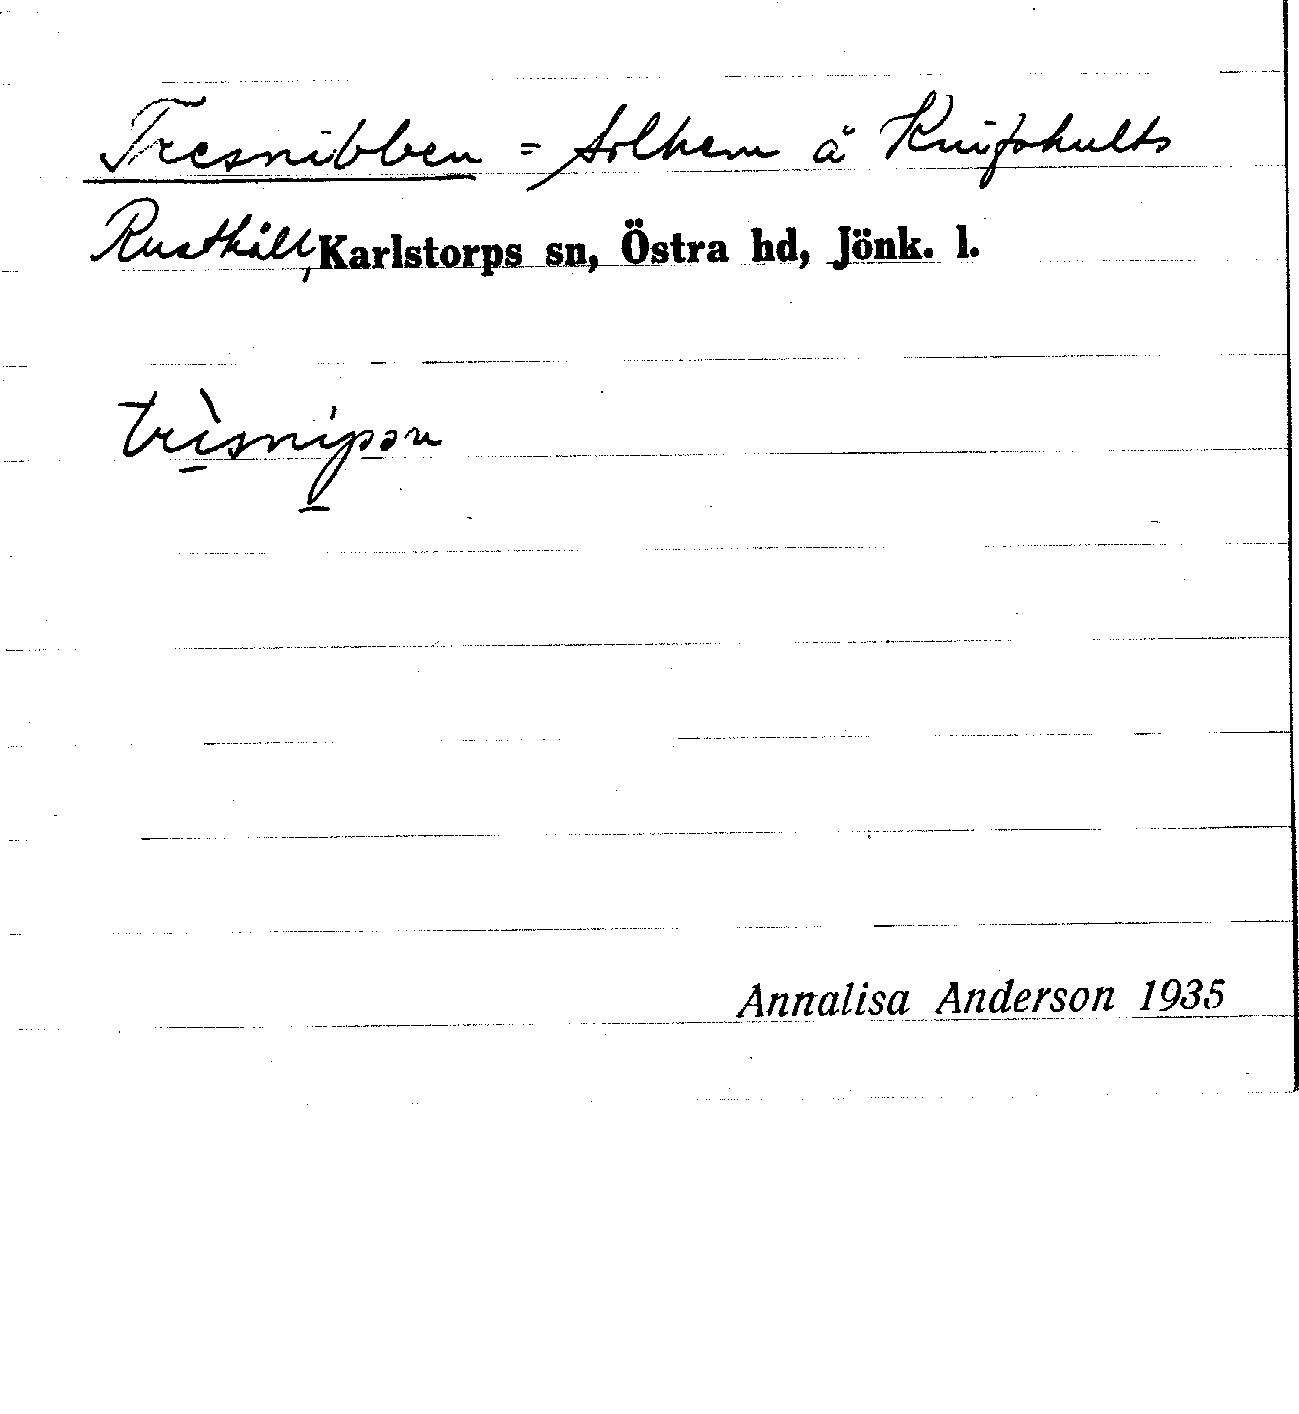 Tresnibben = Solhem å Knifshults
Rusthåll, Karlstorps sn, Östra hd, Jönk. l.
trìsnípən
Annalisa Anderson 1935